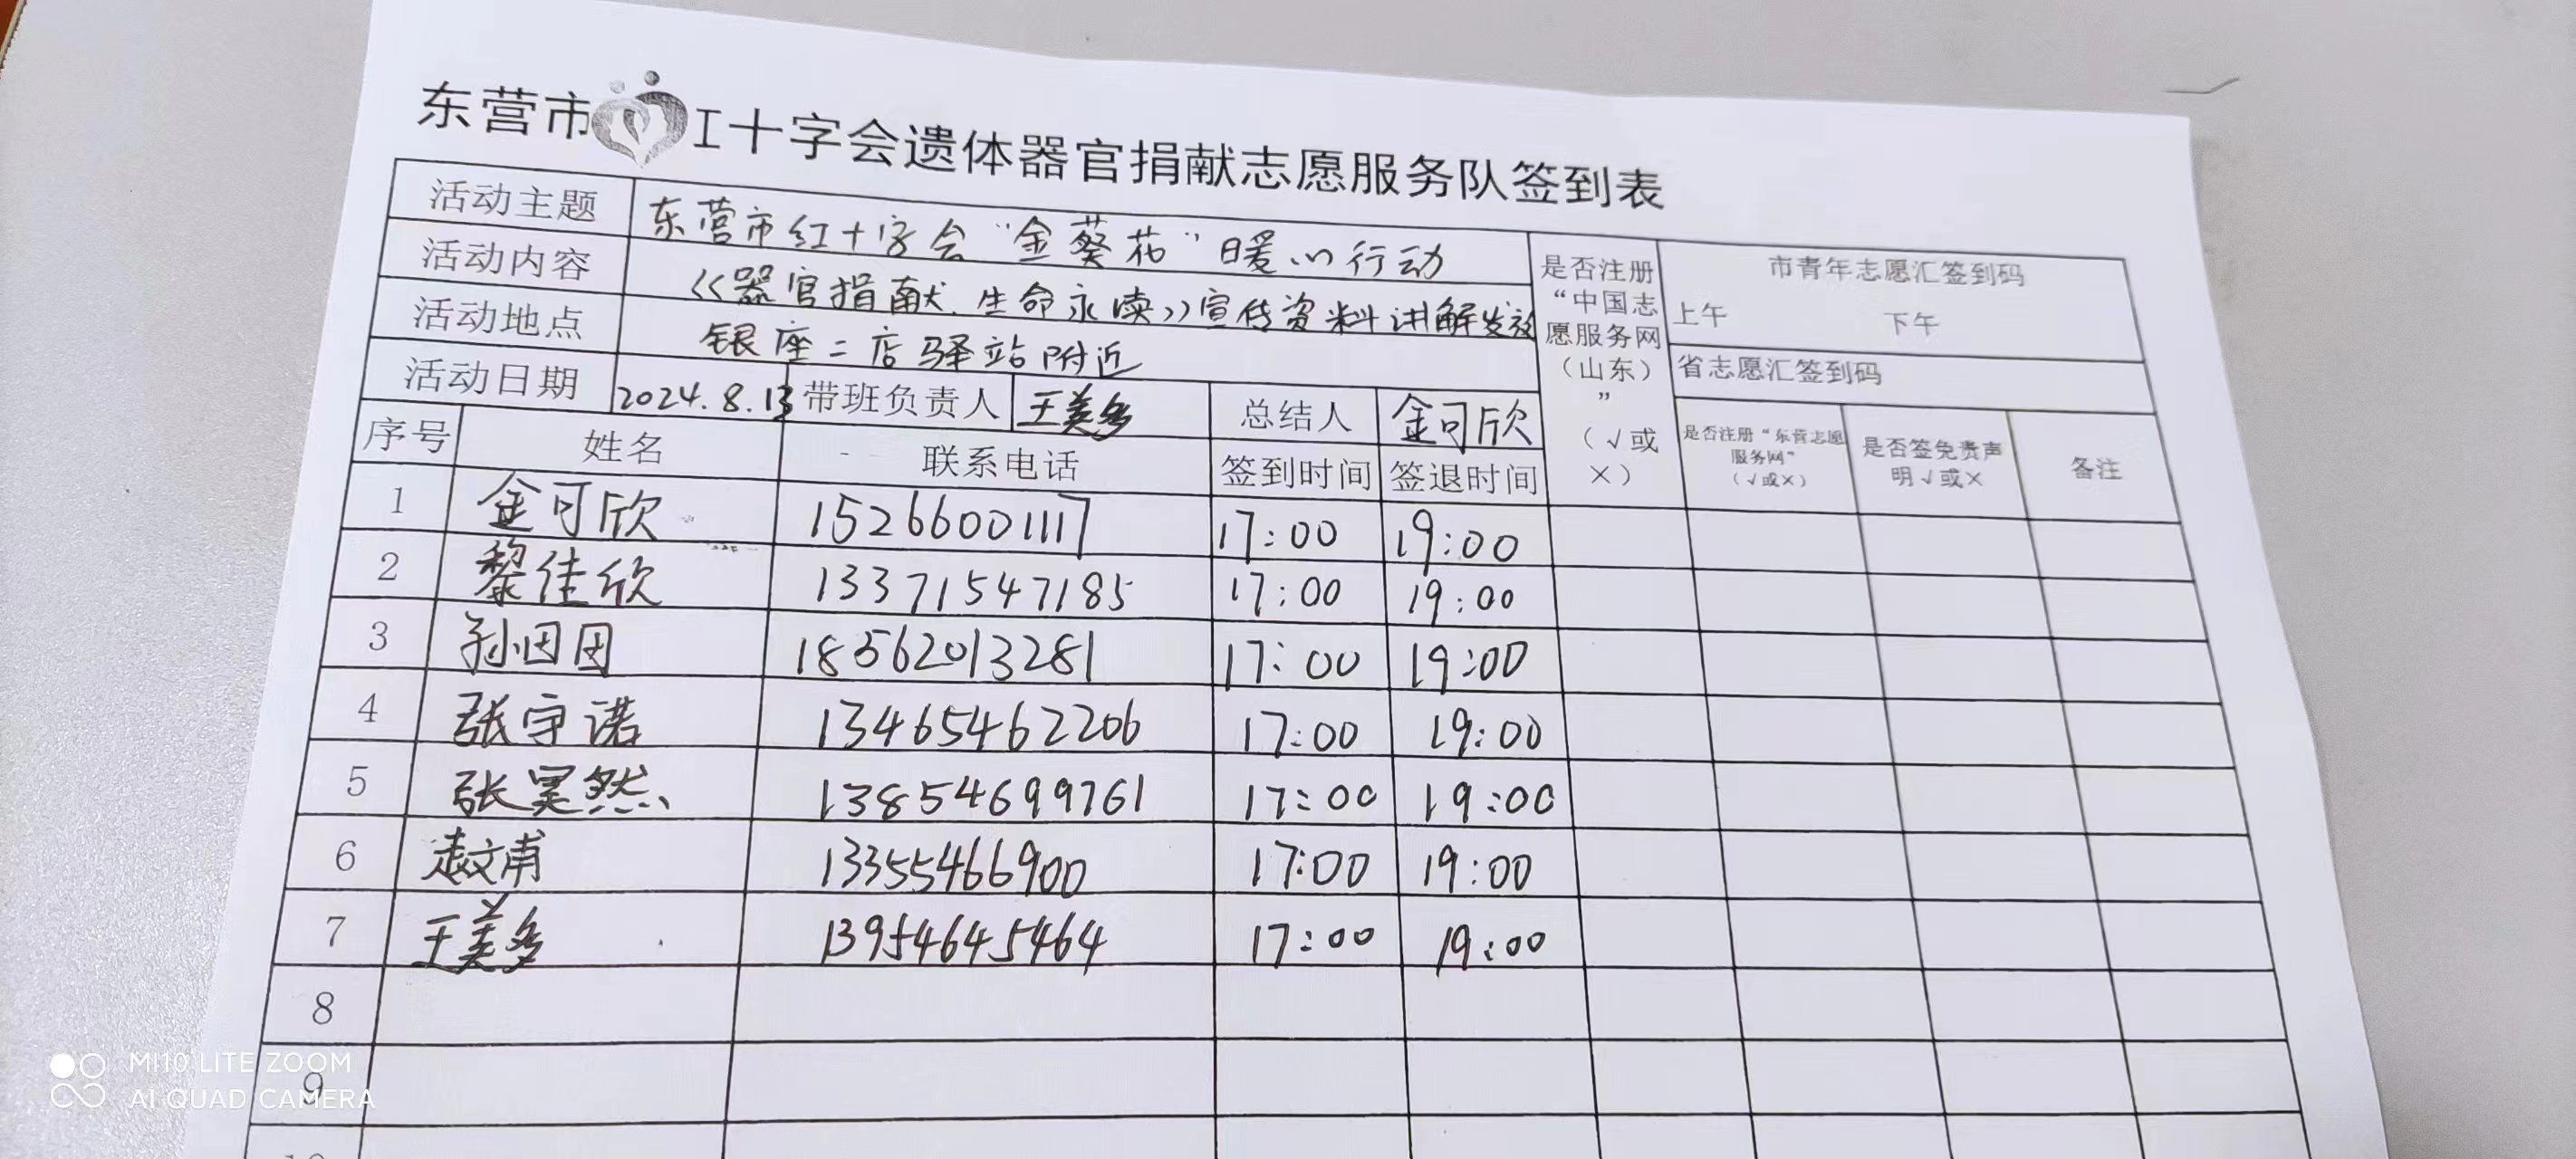 东营市红十字会遗体器官捐献志愿服务队签到表
活动主题 东营市红十字会“金葵花”暖心行动
活动内容 《器官捐献.生命永续》宣传资料讲解发放
活动地点 银座二店驿站附近
活动日期 2024.8.13 带班负责人 王美多 总结人 金可欣
是否注册“中国志愿服务网（山东）”（√或×）
市青年志愿汇签到码
上午 下午
省志愿汇签到码
序号 姓名 联系电话 签到时间 签退时间 是否注册“东营志愿服务网”（√或×） 是否签免责声明√或× 备注
1 金可欣 15266001117 17:00 19:00
2 黎佳欣 13371547185 17:00 19:00
3 孙田田 18562013281 17:00 19:00
4 张宇诺 13465462206 17:00 19:00
5 张昊然 13854699761 17:00 19:00
6 赵文甫 13355466900 17:00 19:00
7 王美多 13954645464 17:00 19:00
8
9
10
MI10 LITE ZOOM
AI QUAD CAMERA